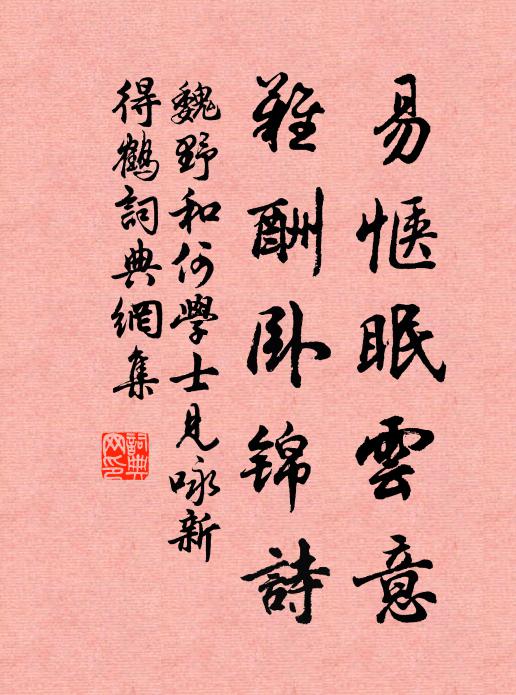 易愜眠雲意
難酬卧錦詩
魏野和何學士見咏新
得鶴詞典網集
詞典
网印